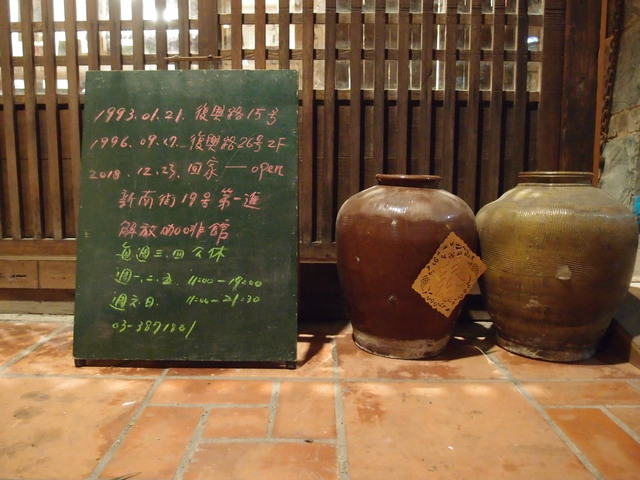 1993.01.21. 復興路15号
1996.09.17. 復興路26号2F
2018.12.23. 回家 — open
新南街19号第一進
解放咖啡館
每週三.四公休
週一.二.五. 11:00-19:00
週六.日. 11:00-21:30
03-3871801